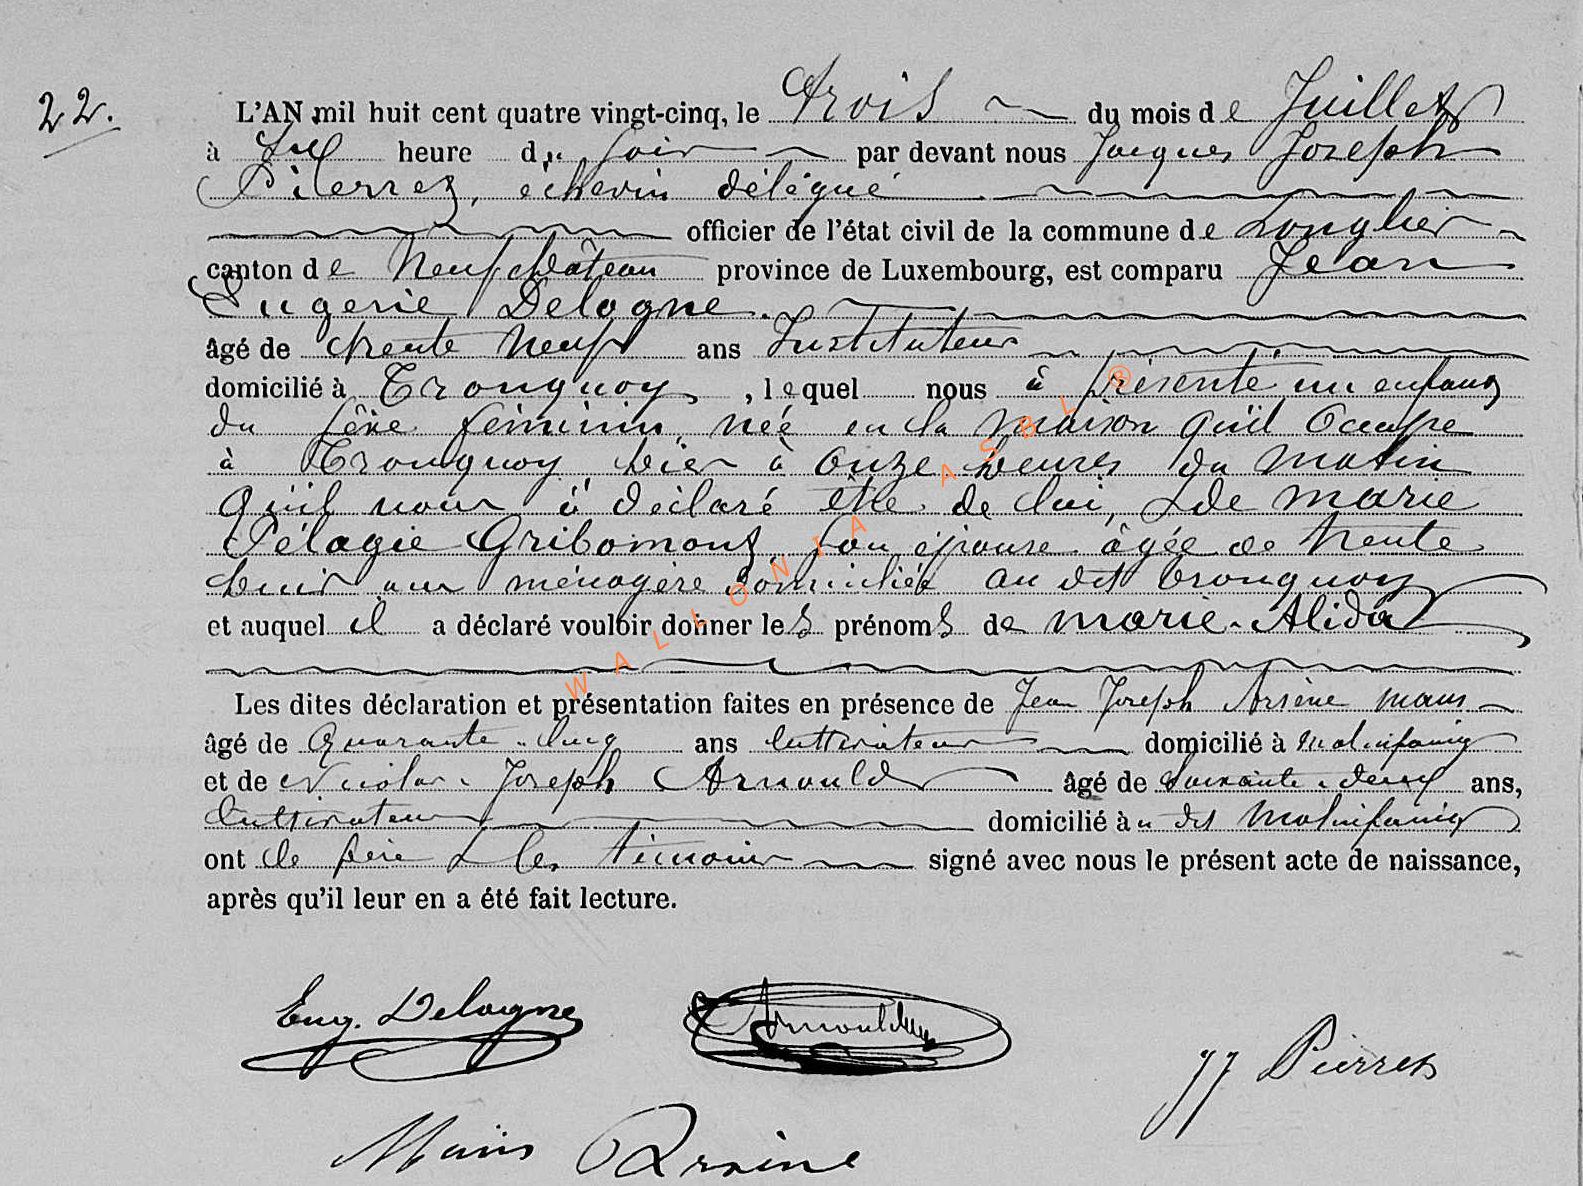 22.
L'AN mil huit cent quatre vingt-cinq, le trois du mois de Juillet
à six heure du soir par devant nous Jacques Joseph
Pierret, échevin délégué
officier de l'état civil de la commune de Longlier
canton de Neufchâteau province de Luxembourg, est comparu Jean
Eugène Delogne.
âgé de trente neuf ans Instituteur
domicilié à Tronquoy, lequel nous à présenté un enfant
du sexe féminin, néé en la maison qu'il occupe
à Tronquoy hier à onze heures du matin
qu'il nous à déclaré être de lui, & de marie
Pélagie Gribomont, son épouse âgée de trente
huit ans ménagère domiciliée au dit tronquoy
et auquel il a déclaré vouloir donner les prénoms de marie-Alida
Les dites déclaration et présentation faites en présence de Jean Joseph Arsène maus
âgé de Quarante-cinq ans cultivateur domicilié à Molinfaing
et de Nicolas-Joseph Arnould âgé de soixante-deux ans,
Cultivateur domicilié au dit Molinfaing
ont le père & les témoins signé avec nous le présent acte de naissance,
après qu'il leur en a été fait lecture.
Eug. Delogne
Arnould
JJ Pierret
Maus Arsène
WALLONIA ASBL ®